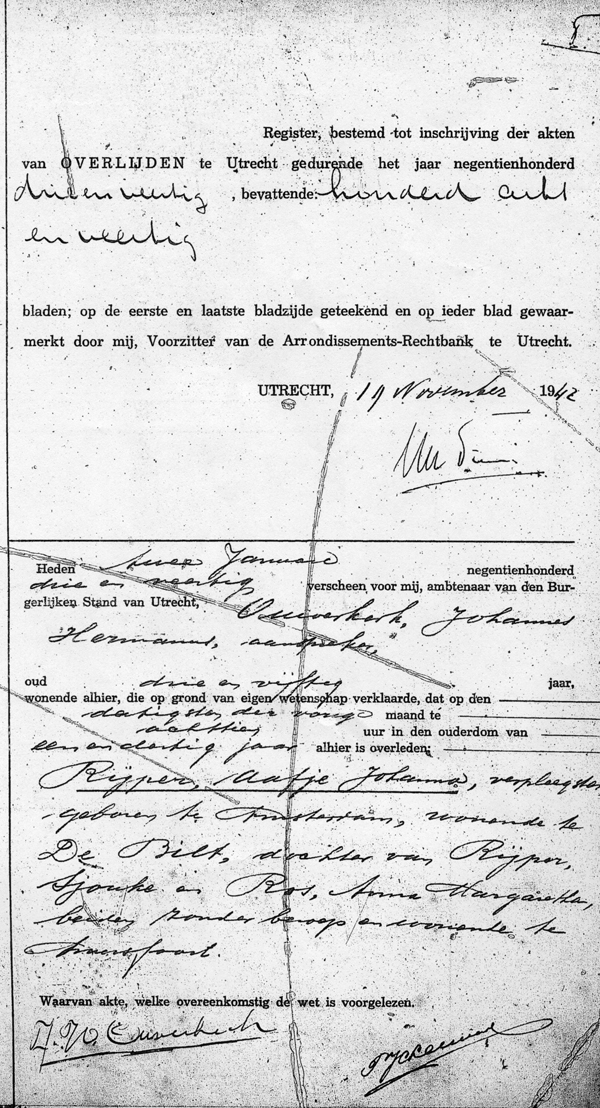 Register, bestemd tot inschrijving der akten
van OVERLIJDEN te Utrecht gedurende het jaar negentienhonderd
drie en veertig, bevattende: honderd acht
en veertig
bladen; op de eerste en laatste bladzijde geteekend en op ieder blad gewaar-
merkt door mij, Voorzitter van de Arrondissements-Rechtbank te Utrecht.
UTRECHT, 19 November 1942
Heden twee Januari negentienhonderd
drie en veertig verscheen voor mij, ambtenaar van den Bur-
gerlijken Stand van Utrecht, Ouwerkerk, Johannes
Hermanus, aanspreker,
oud drie en vijftig jaar,
wonende alhier, die op grond van eigen wetenschap verklaarde, dat op den
dertigsten der vorige maand te
achttien uur in den ouderdom van
een en dertig jaar alhier is overleden:
Rijper, Aafje Johanna, verpleegster
geboren te Amsterdam, wonende te
De Bilt, dochter van Rijper,
Sjouke en Ros, Anna Margaretha,
beiden zonder beroep en wonende te
Amersfoort.
Waarvan akte, welke overeenkomstig de wet is voorgelezen.
Ouwerkerk